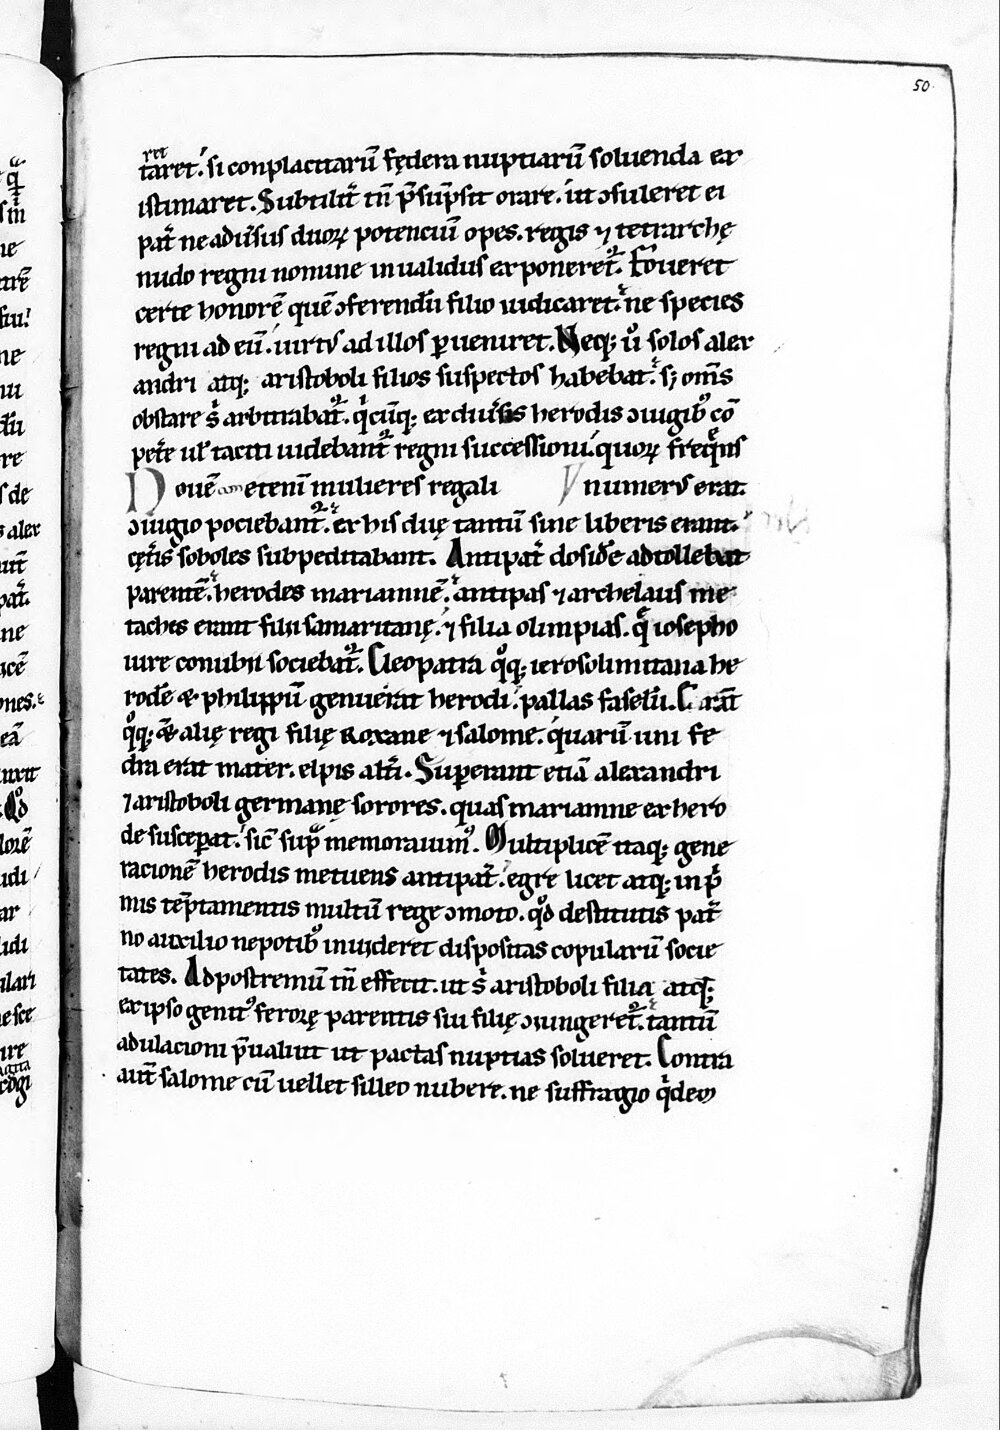 50
ret
taret. si conplacitarū fędera nuptiarū soluenda ex
istimaret. Subtilit̄ tn̄ p̄sūpsit orare. ut ɔsuleret ei
pat̄ ne aduersus duoꝝ potenciū opes. regis ⁊ tetrarchę
nudo regni nomine inualidus exponeret᷑. Foueret
certe honorē quē ɔferendū filio iudicaret. ne species
regni ad eū. uirtus ad illos ꝑueniret. Neq; ů solos alex
andri atq; aristoboli filios suspectos habebat. s; oms̄
obstare s̄ arbitrabat᷑. qicūq; ex diuersis herodis ɔiugib; cō
pet̄e ul̄ taciti uidebant᷑ regni successioni. quoꝝ freqn̄s
Nouē etenī mulieres regali numerus erat.
ɔiugio pociebant᷑. ex his duę tantū sine liberis erant.
cęt̄is soboles subpeditabant. Antipat̄ dosidē adtollebat
parentē. herodes mariamnē. antipas ⁊ archelaus me
taches erant filii samaritanę. ⁊ filia olimpias. q̄ iosepho
iure conubii sociebat᷑. Cleopatra qq; ierosolimitana he
rodē & philippū genuerat herodi. pallas faselū. Erant
qq; & alię regi filię Roxane ⁊ salome. quarū uni fe
dra erat mater. elpis alt̄i. Superant etiā alexandri
⁊ aristoboli germanę sorores. quas mariamne ex hero
de susceperat. sic̄ sup̄ memorauim⁹. Multiplicē itaq; gene
racionē herodis metuens antipat̄. egre licet atq; inp̄
mis tēptamentis multū rege ɔmoto. qd̄ destitutis pat̄
no auxilio nepotib; inuideret dispositas copularū socie
tates. Ad postremū tn̄ effecit. ut s̄ aristoboli filia atq;
ex ipso genit⁹ ferorę parentis sui filię ɔiungeret᷑. tantū
adulacioni p̄ualuit ut pactas nuptias solueret. Contra
aut̄ salome cū uellet silleo nubere. ne suffragio qidem